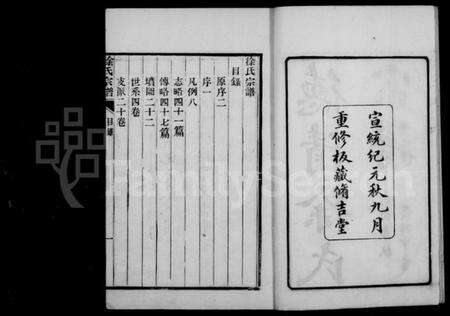 宣統紀元秋九月
重修板藏脩吉堂
徐氏宗譜
目錄
原序二
序一
凡例八
志略四十一篇
傳略四十七篇
墳圖二十二
世系四卷
支派二十卷
徐氏宗譜
目錄
一
FamilySearch